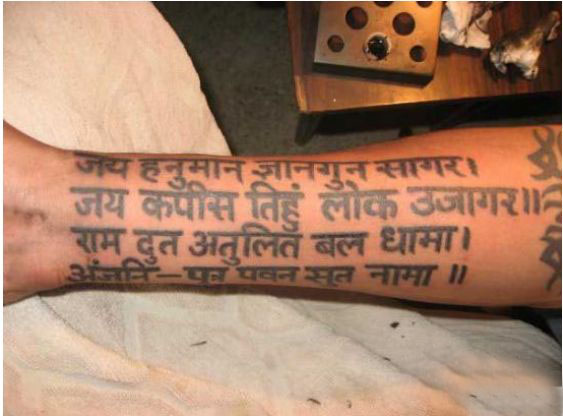 जय हनुमान ज्ञानगुन सागर।
जय कपीस तिहुं लोक उजागर॥
राम दुत अतुलित बल धामा।
अंजनि-पुत्र पवन सुत नामा ॥